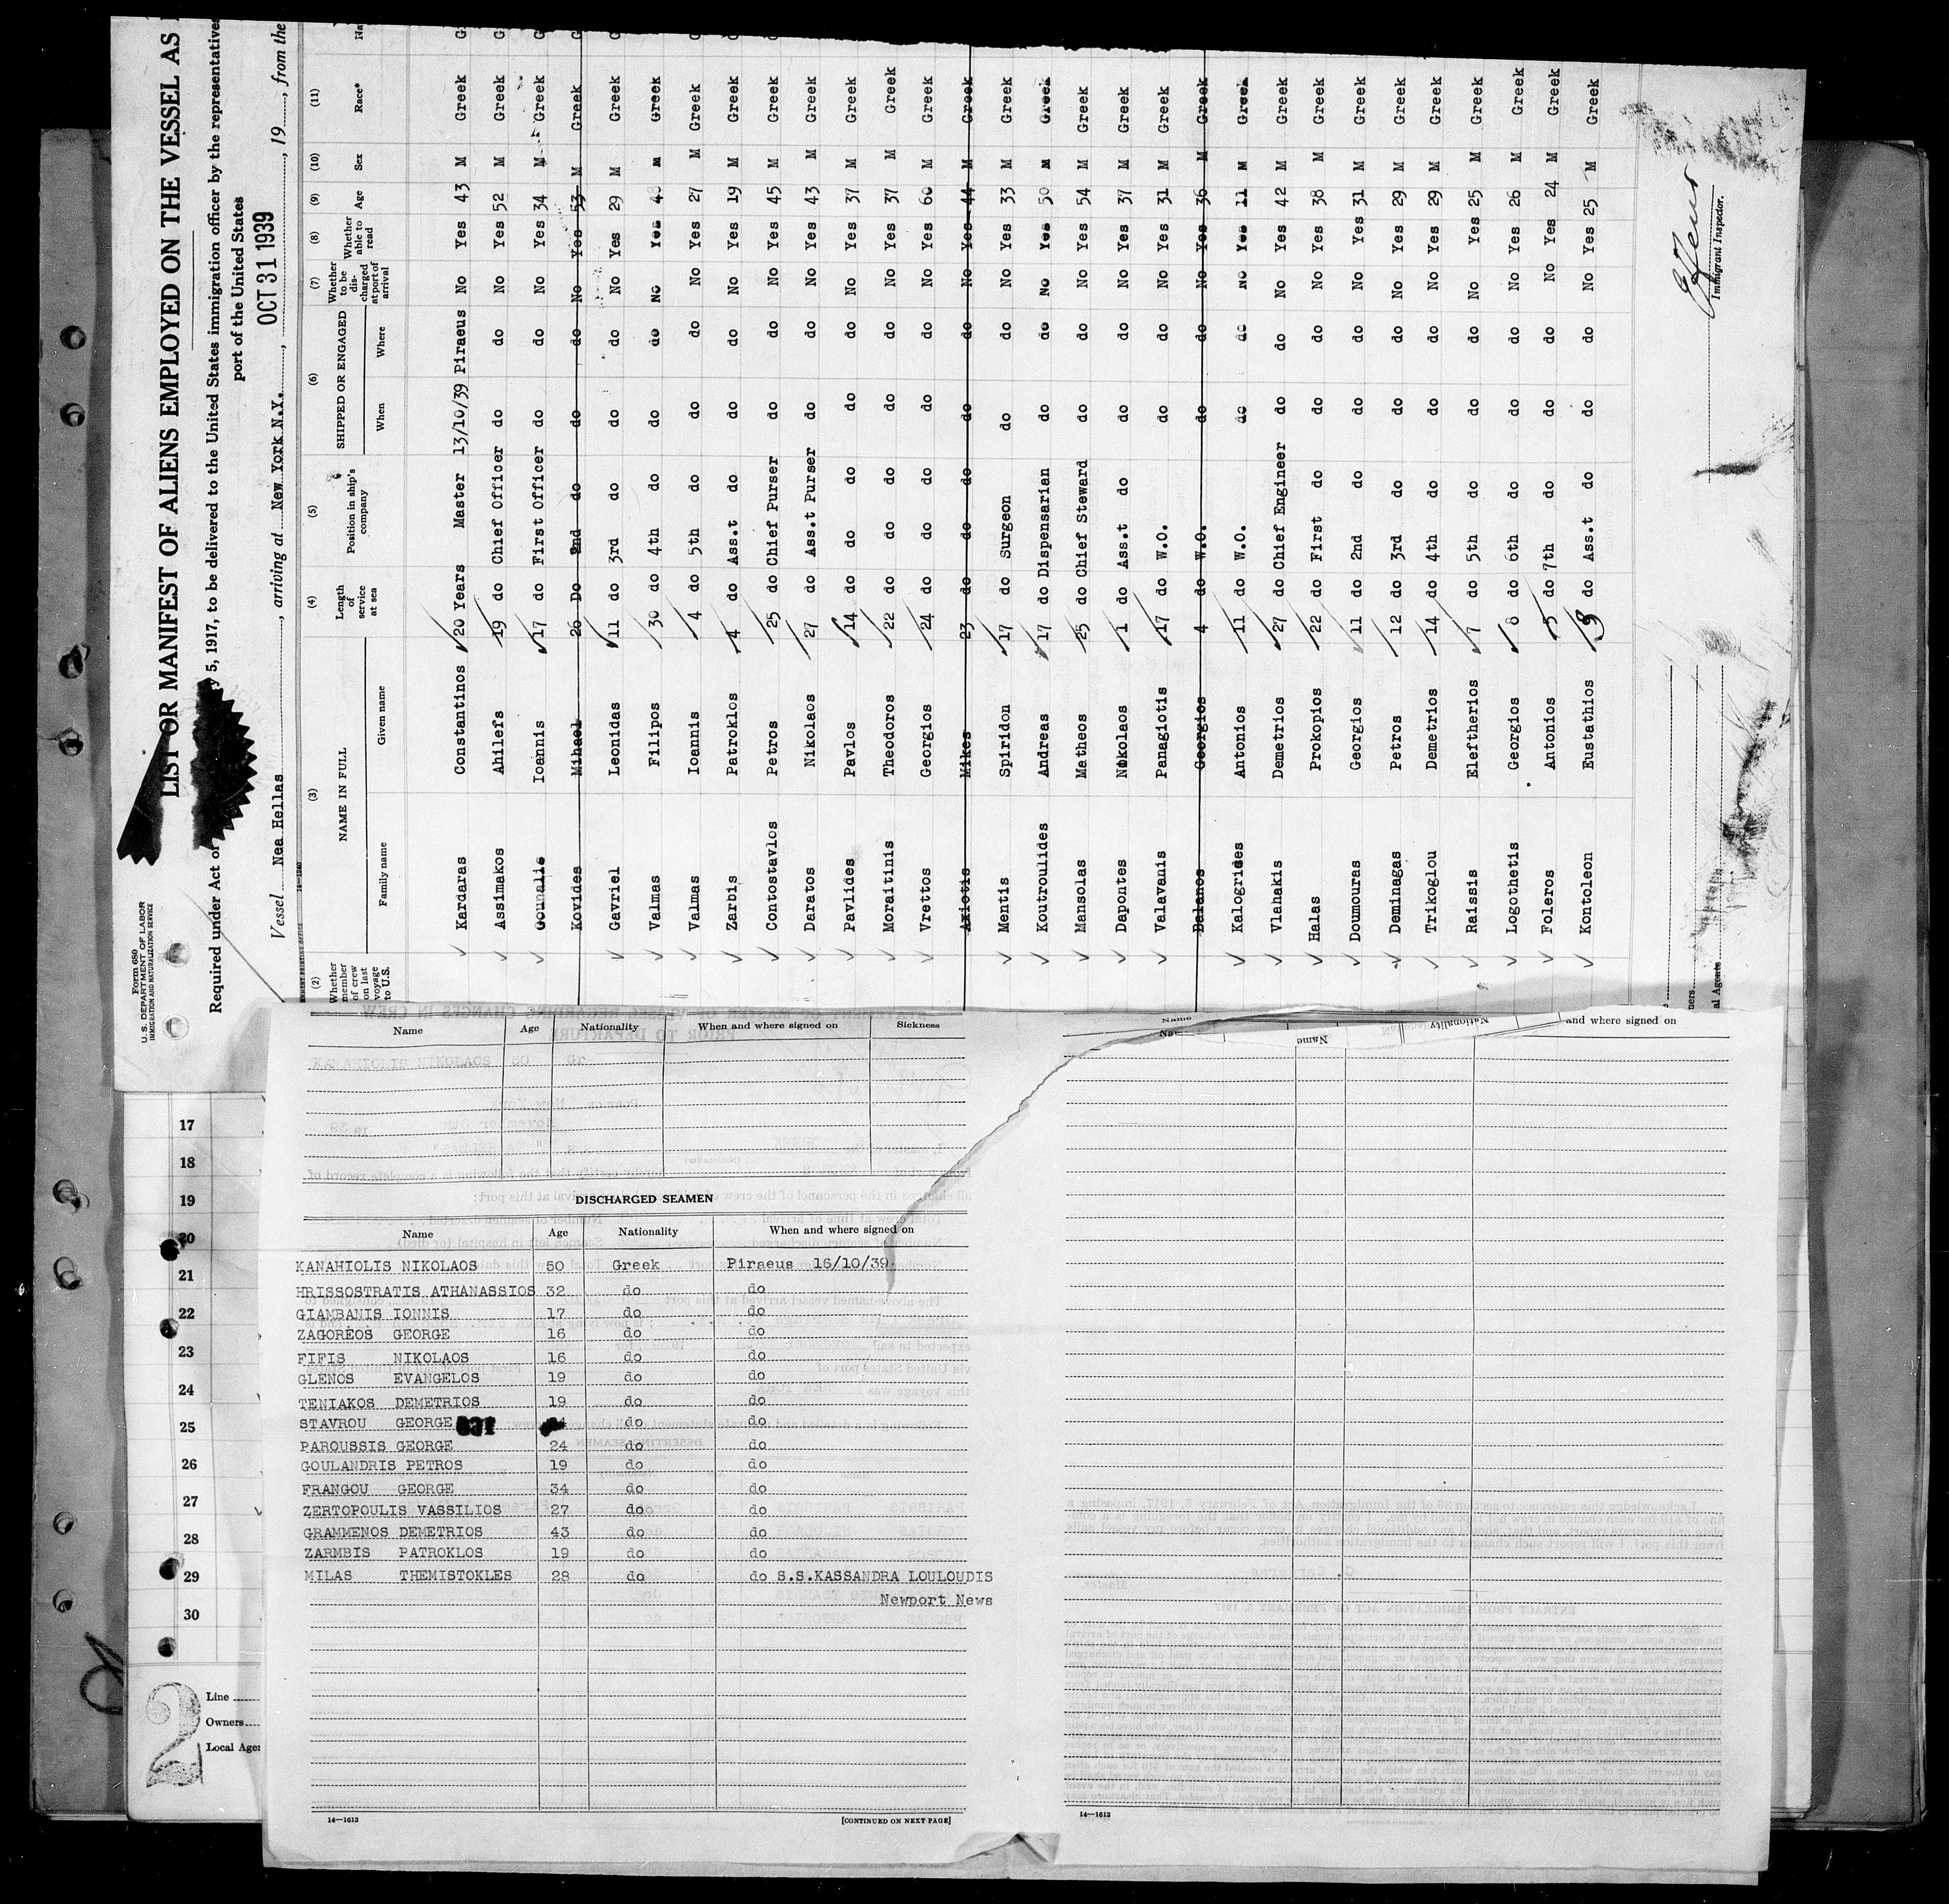 Form 680
U. S. DEPARTMENT OF LABOR
IMMIGRATION AND NATURALIZATION SERVICE
LIST OR MANIFEST OF ALIENS EMPLOYED ON THE VESSEL AS
Required under Act of y 5, 1917, to be delivered to the United States immigration officer by the representatives
port of the United States
Vessel Nea Hellas, arriving at New York N.Y., OCT 31 1939, 19, from the
14-1240
(2) (3) (4) (5) (6) (7) (8) (9) (10) (11)
Whether member of crew on last voyage to U.S. NAME IN FULL Length of service at sea Position in ship's company SHIPPED OR ENGAGED Whether to be discharged at port of arrival Whether able to read Age Sex Race*
Family name Given name When Where
Kardaras Constantinos 20 Years Master 13/10/39 Piraeus No Yes 43 M Greek
Assimakos Ahilefs 19 do Chief Officer do do No Yes 52 M Greek
Gounalis Ioannis 17 do First Officer do do No Yes 34 M Greek
Kovides Mihael 26 Do 2nd do do do No Yes 53 M Greek
Gavriel Leonidas 11 do 3rd do do do No Yes 29 M Greek
Valmas Filipos 30 do 4th do do do No Yes 48 M Greek
Valmas Ioannis 4 do 5th do do do No Yes 27 M Greek
Zarbis Patroklos 4 do Ass.t do do do No Yes 19 M Greek
Contostavlos Petros 25 do Chief Purser do do No Yes 45 M Greek
Daratos Nikolaos 27 do Ass.t Purser do do No Yes 43 M Greek
Pavlides Pavlos 14 do do do do do No Yes 37 M Greek
Moraitinis Theodoros 22 do do do do do No Yes 37 M Greek
Vrettos Georgios 24 do do do do do No Yes 60 M Greek
Axiotis Mikes 23 do do do do do No Yes 44 M Greek
Mentis Spiridon 17 do Surgeon do do No Yes 33 M Greek
Koutroulides Andreas 17 do Dispensarian do do No Yes 50 M Greek
Mansolas Matheos 25 do Chief Steward do do No Yes 54 M Greek
Depontes Nikolaos 1 do Ass.t do do do No Yes 37 M Greek
Valavanis Panagiotis 17 do W.O. do do No Yes 31 M Greek
Balanos Georgios 4 do W.O. do do No Yes 36 M Greek
Kalogrides Antonios 11 do W.O. do do No Yes 11 M Greek
Vlahakis Demetrios 27 do Chief Engineer do do No Yes 42 M Greek
Halas Prokopios 22 do First do do do No Yes 38 M Greek
Doumouras Georgios 11 do 2nd do do do No Yes 31 M Greek
Deminagas Petros 12 do 3rd do do do No Yes 29 M Greek
Trikoglou Demetrios 14 do 4th do do do No Yes 29 M Greek
Raissis Eleftherios 7 do 5th do do do No Yes 25 M Greek
Logothetis Georgios 8 do 6th do do do No Yes 26 M Greek
Foleros Antonios 5 do 7th do do do No Yes 24 M Greek
Kontoleon Eustathios do Ass.t do do do No Yes 25 M Greek
Immigrant Inspector.
al Agents
Name Age Nationality When and where signed on Sickness
DISCHARGED SEAMEN
Name Age Nationality When and where signed on
KANAHIOLIS NIKOLAOS 50 Greek Piraeus 16/10/39
HRISSOSTRATIS ATHANASSIOS 32 do do
GIAMBANIS IONNIS 17 do do
ZAGOREOS GEORGE 16 do do
FIFIS NIKOLAOS 16 do do
GLENOS EVANGELOS 19 do do
TENIAKOS DEMETRIOS 19 do do
STAVROU GEORGE do do
PAROUSSIS GEORGE 24 do do
GOULANDRIS PETROS 19 do do
FRANGOU GEORGE 34 do do
ZERTOPOULIS VASSILIOS 27 do do
GRAMMENOS DEMETRIOS 43 do do
ZARMBIS PATROKLOS 19 do do
MILAS THEMISTOKLES 28 do do S.S.KASSANDRA LOULOUDIS
Newport News
14—1613
[CONTINUED ON NEXT PAGE]
Name Nationality and where signed on
14—1613
17
18
19
20
21
22
23
24
25
26
27
28
29
30
2
Line
Owners
Local Agen